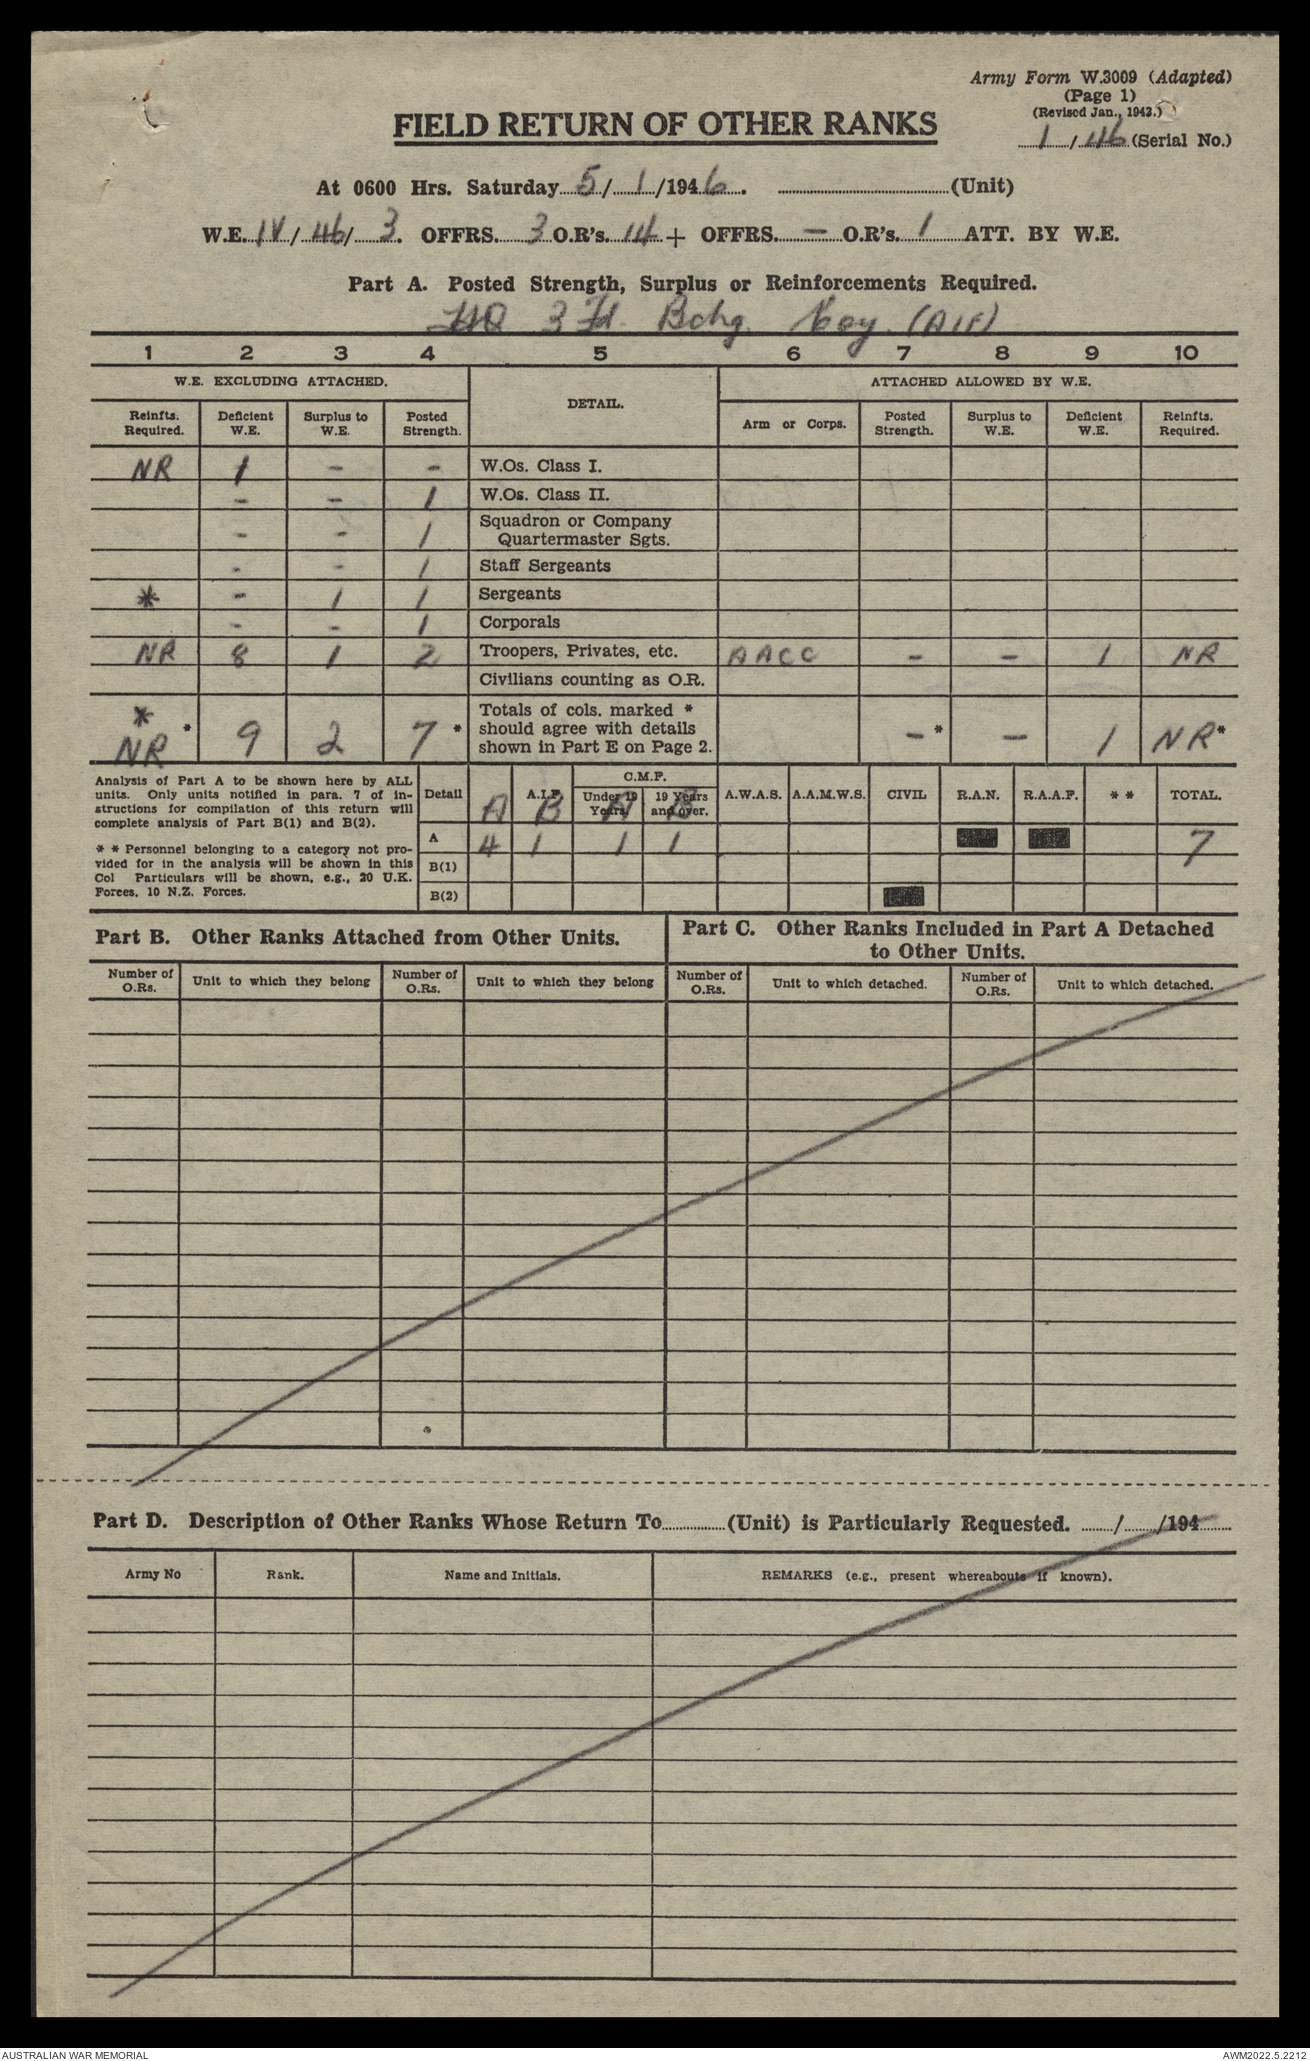 Army Form W.3009 (Adapted)
(Page 1)
(Revised Jan., 1943.)
FIELD RETURN OF OTHER RANKS
1/46 (Serial No.)
At 0600 Hrs. Saturday 5/1/1946. (Unit)
W.E. IV/46/3. OFFRS. 3 O.R's. 14 + OFFRS. — O.R's. 1 ATT. BY W.E.
Part A. Posted Strength, Surplus or Reinforcements Required.
HQ 3 Fd. Bchg. Coy. (AIF)
1 2 3 4 5 6 7 8 9 10
W.E. EXCLUDING ATTACHED. DETAIL. ATTACHED ALLOWED BY W.E.
Reinfts. Required. Deficient W.E. Surplus to W.E. Posted Strength. Arm or Corps. Posted Strength. Surplus to W.E. Deficient W.E. Reinfts. Required.
NR 1 - - W.Os. Class I.
- - 1 W.Os. Class II.
- - 1 Squadron or Company Quartermaster Sgts.
- - 1 Staff Sergeants
* - 1 1 Sergeants
- - 1 Corporals
NR 8 1 2 Troopers, Privates, etc. AACC - - 1 NR
Civilians counting as O.R.
* NR * 9 2 7 * Totals of cols. marked * should agree with details shown in Part E on Page 2. - * - 1 NR *
Analysis of Part A to be shown here by ALL
units. Only units notified in para. 7 of in-
structions for compilation of this return will
complete analysis of Part B(1) and B(2).
* * Personnel belonging to a category not pro-
vided for in the analysis will be shown in this
Col Particulars will be shown, e.g., 20 U.K.
Forces, 10 N.Z. Forces.
Detail A A.I.F. B C.M.F. Under 19 Years A 19 Years and over. B A.W.A.S. A.A.M.W.S. CIVIL R.A.N. R.A.A.F. * * TOTAL.
A 4 1 1 1 7
B(1)
B(2)
Part B. Other Ranks Attached from Other Units.
Part C. Other Ranks Included in Part A Detached
to Other Units.
Number of O.Rs. Unit to which they belong Number of O.Rs. Unit to which they belong Number of O.Rs. Unit to which detached. Number of O.Rs. Unit to which detached.
Part D. Description of Other Ranks Whose Return To (Unit) is Particularly Requested. / /194
Army No Rank. Name and Initials. REMARKS (e.g., present whereabouts if known).
AUSTRALIAN WAR MEMORIAL AWM2022.5.2212